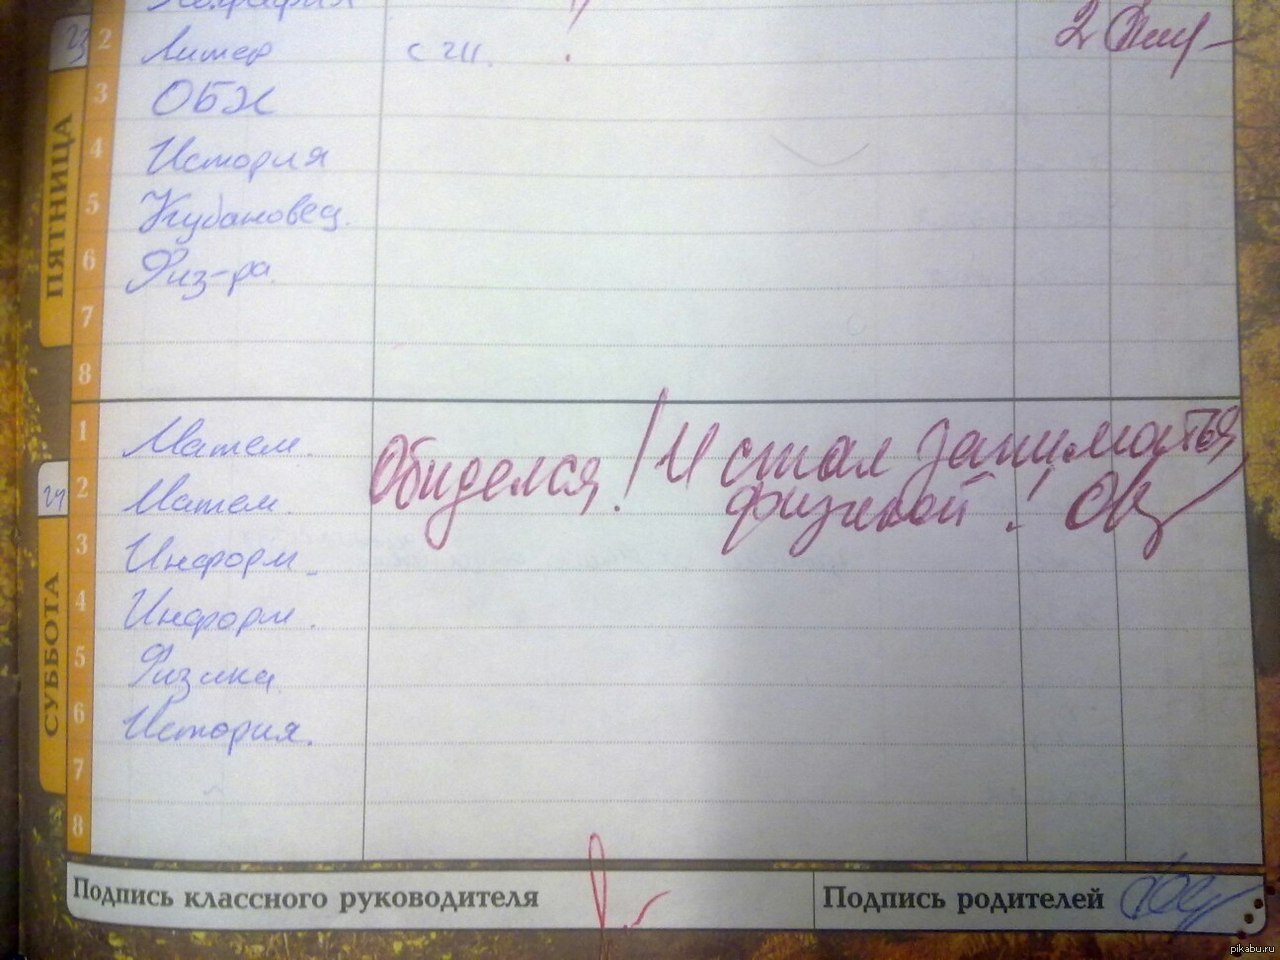 23
2 Литер с чи. 2
3 ОБЖ
4 История
5 Кубановед.
6 Физ-ра
7
8
ПЯТНИЦА
1 Матем. Обиделся! И стал заниматься
2 Матем. физикой!
24
3 Информ.
4 Информ.
5 Физика
6 История.
7
8
СУББОТА
Подпись классного руководителя
Подпись родителей
pikabu.ru